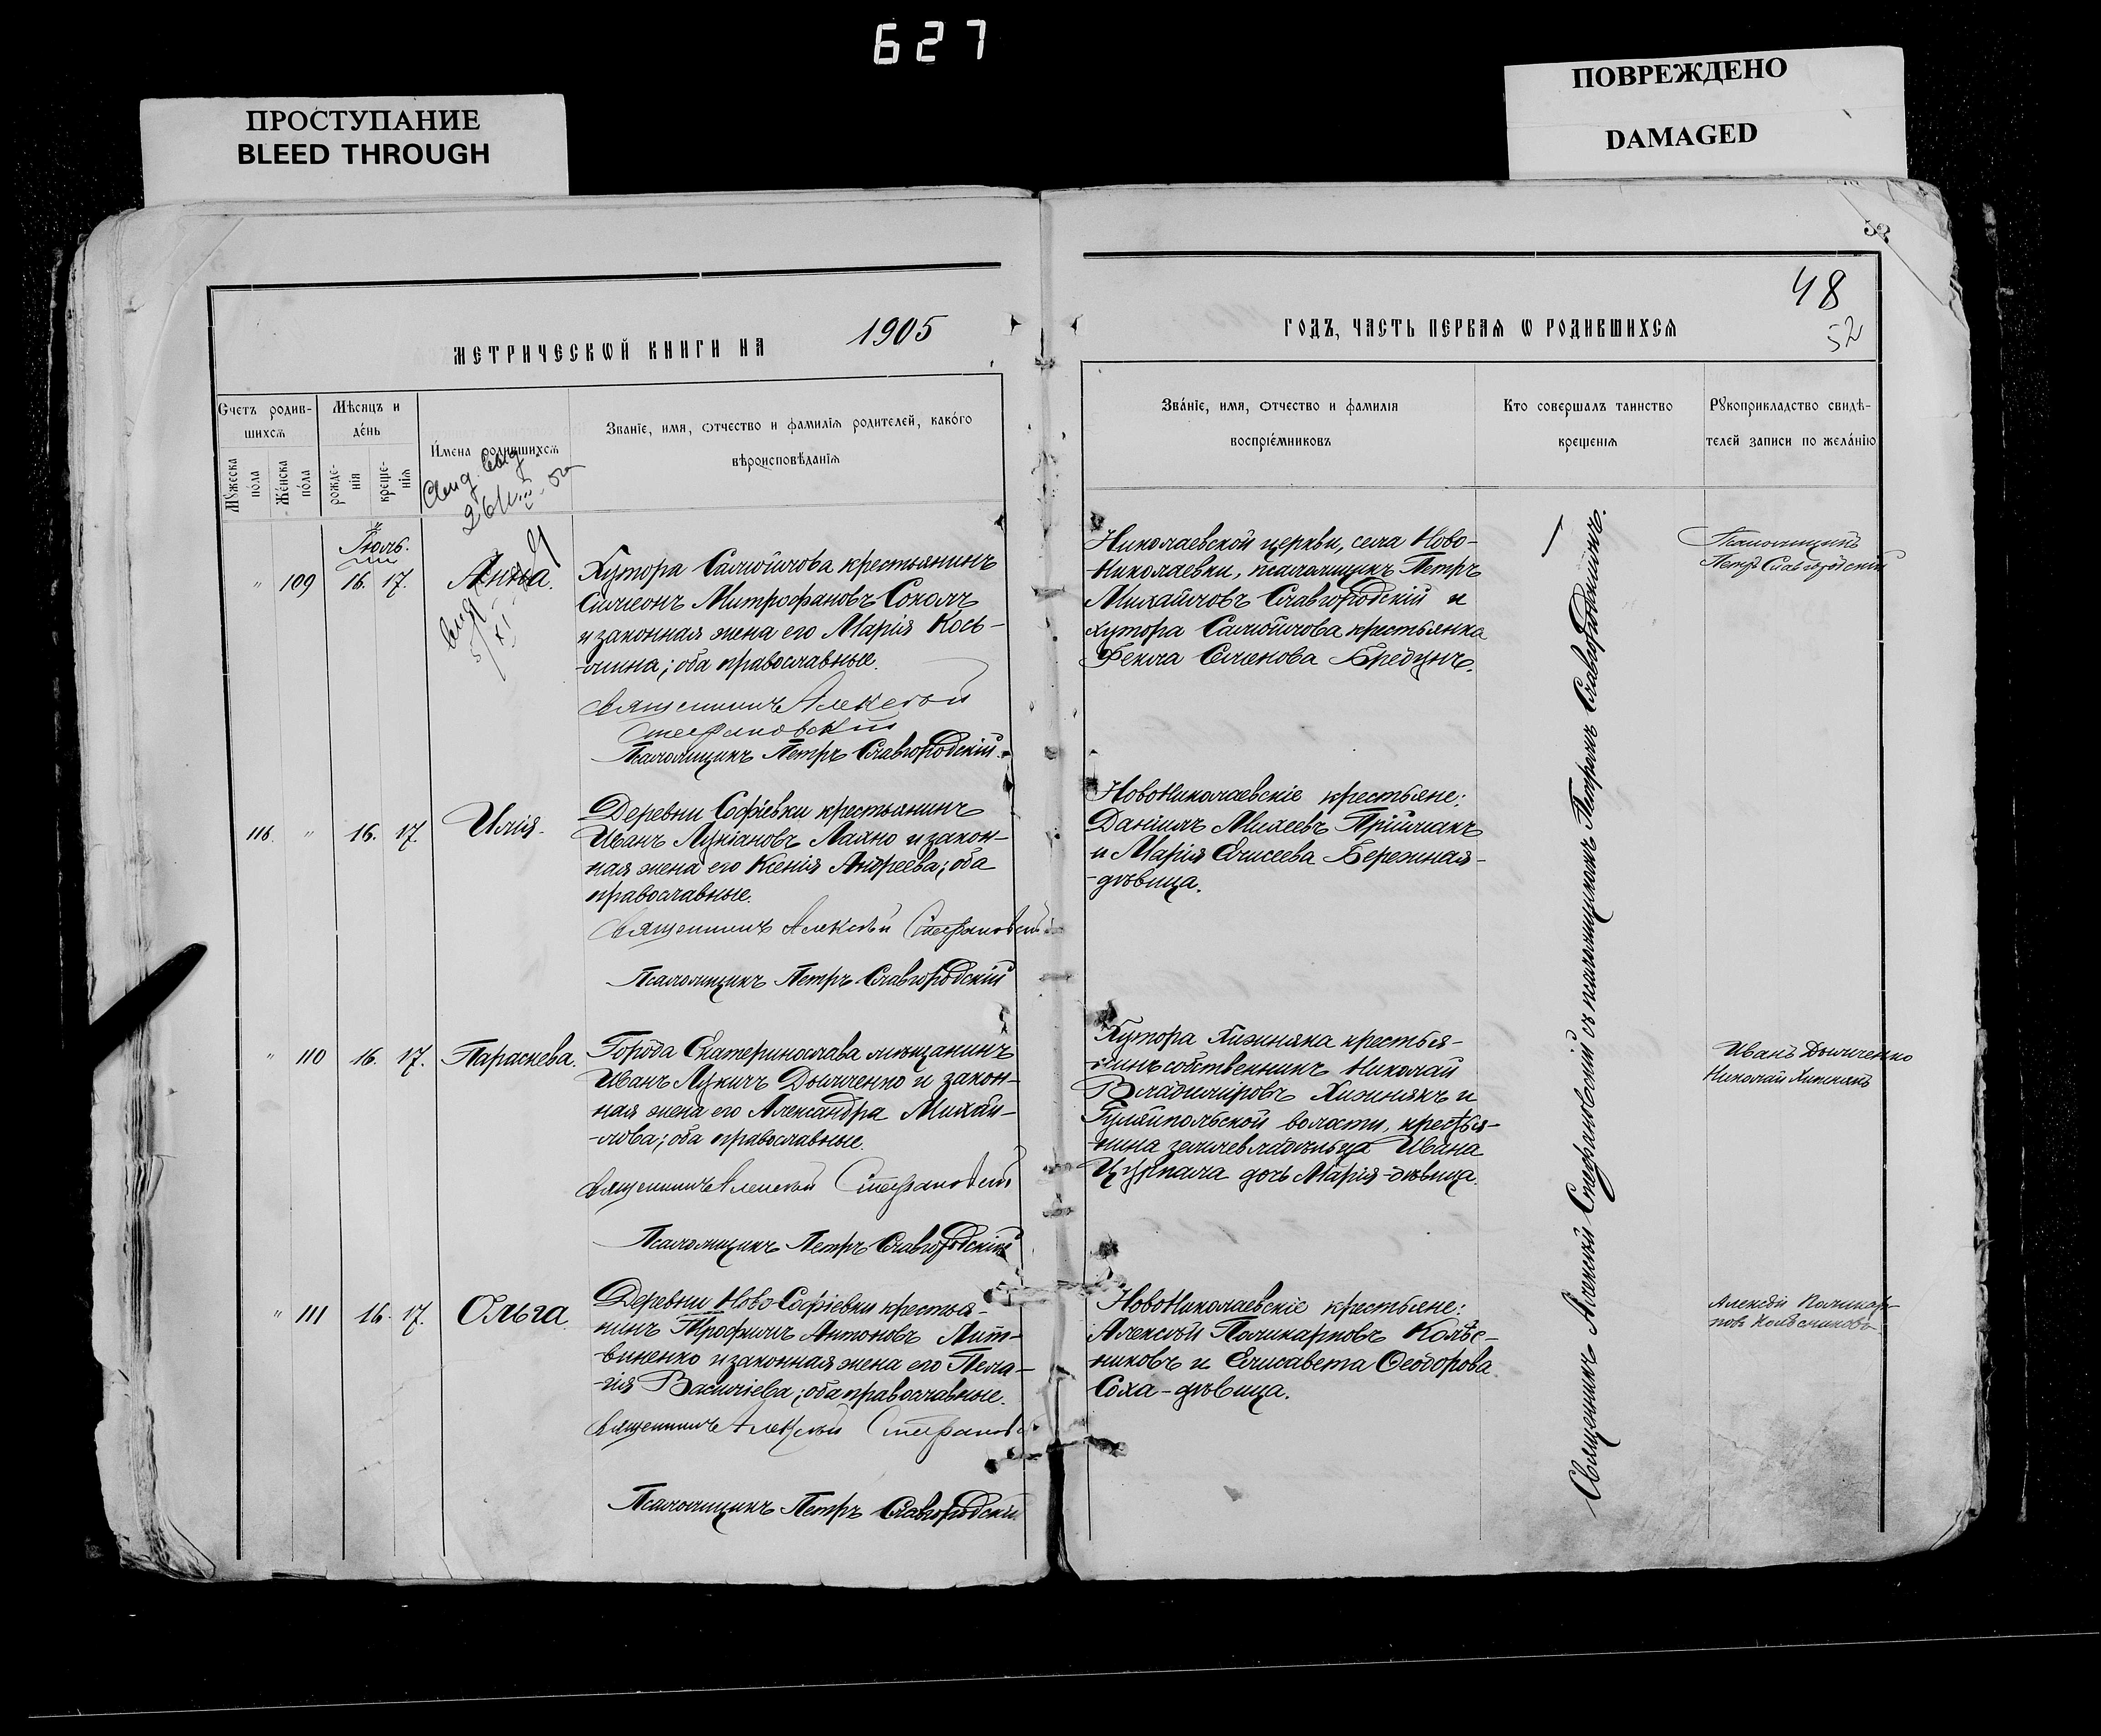 627
ПРОСТУПАНИЕ
BLEED THROUGH
ПОВРЕЖДЕНО
DAMAGED
52
48
52
МЕТРИЧЕСКѠЙ КНИГИ НА 1905
ГОДЪ, ЧАСТЬ ПЕРВАЯ Ѡ РОДИВШИХСЯ
Счетъ родив-
шихся
Мѣсяцъ и
день
Мужеска
пола
Женска
пола
рожде-
нія
креще-
нія
Имена родившихся
Званіе, имя, отчество и фамилія родителей, какого
вѣроисповѣданія
Званіе, имя, отчество и фамилія
воспріемниковъ
Кто совершалъ таинство
крещенія
Рукоприкладство свидѣ-
телей записи по желанію
Іюль.
" 109 16. 17. Анна.
Хутора Самойлова крестьянинъ
Симеонъ Митрофановъ Соколъ
и законная жена его Марія Кось-
-мина; оба православные.
Священникъ Алексѣй
Стефановскій
Псаломщикъ Петръ Славгородскій.
Николаевской церкви, села Ново-
-Николаевки, псаломщикъ Петръ
Михайловъ Славгородскій и
хутора Самойлова крестьянка
Ѳекла Семенова Бредунъ.
Псаломщикъ
Петръ Славгородскій
118. " 16. 17. Илія.
Деревни Софіевки крестьянинъ
Иванъ Лукіановъ Лахно и закон-
ная жена его Ксенія Андреева; оба
православные.
Священникъ Алексѣй Стефановскій
Псаломщикъ Петръ Славгородскій
НовоНиколаевскіе крестьяне:
Даніилъ Михеевъ Пріймакъ
и Марія Елисеева Бережная-
-дѣвица.
" 110 16. 17. Параскева.
Города Екатеринослава мѣщанинъ
Иванъ Лукичъ Домченко и закон-
ная жена его Александра Михай-
-лова; оба православные.
Священникъ Алексѣй Стефановскій
Псаломщикъ Петръ Славгородскій
Хутора Хижняка крестья-
-нинъ собственникъ Николай
Владиміровъ Хижнякъ и
Гуляйпольской волости, крестья-
-нина землевладѣльца Ивана
дочь Марія-дѣвица.
Иванъ Домченко
Николай Хижнякъ
" 111 16. 17. Ольга
Деревни Ново-Софіевки крестья-
нинъ Трофимъ Антоновъ Лит-
-виненко и законная жена его Пела-
-гія Василіева; оба православные.
Священникъ Алексѣй Стефановскій
Псаломщикъ Петръ Славгородскій
НовоНиколаевскіе крестьяне:
Алексѣй Поликарповъ Колѣс-
никовъ и Елисавета Ѳеодорова
Соха-дѣвица.
Алексѣй Поликар-
повъ Колѣсниковъ
Священникъ Алексѣй Стефановскій съ псаломщикомъ Петромъ Славгородскимъ.